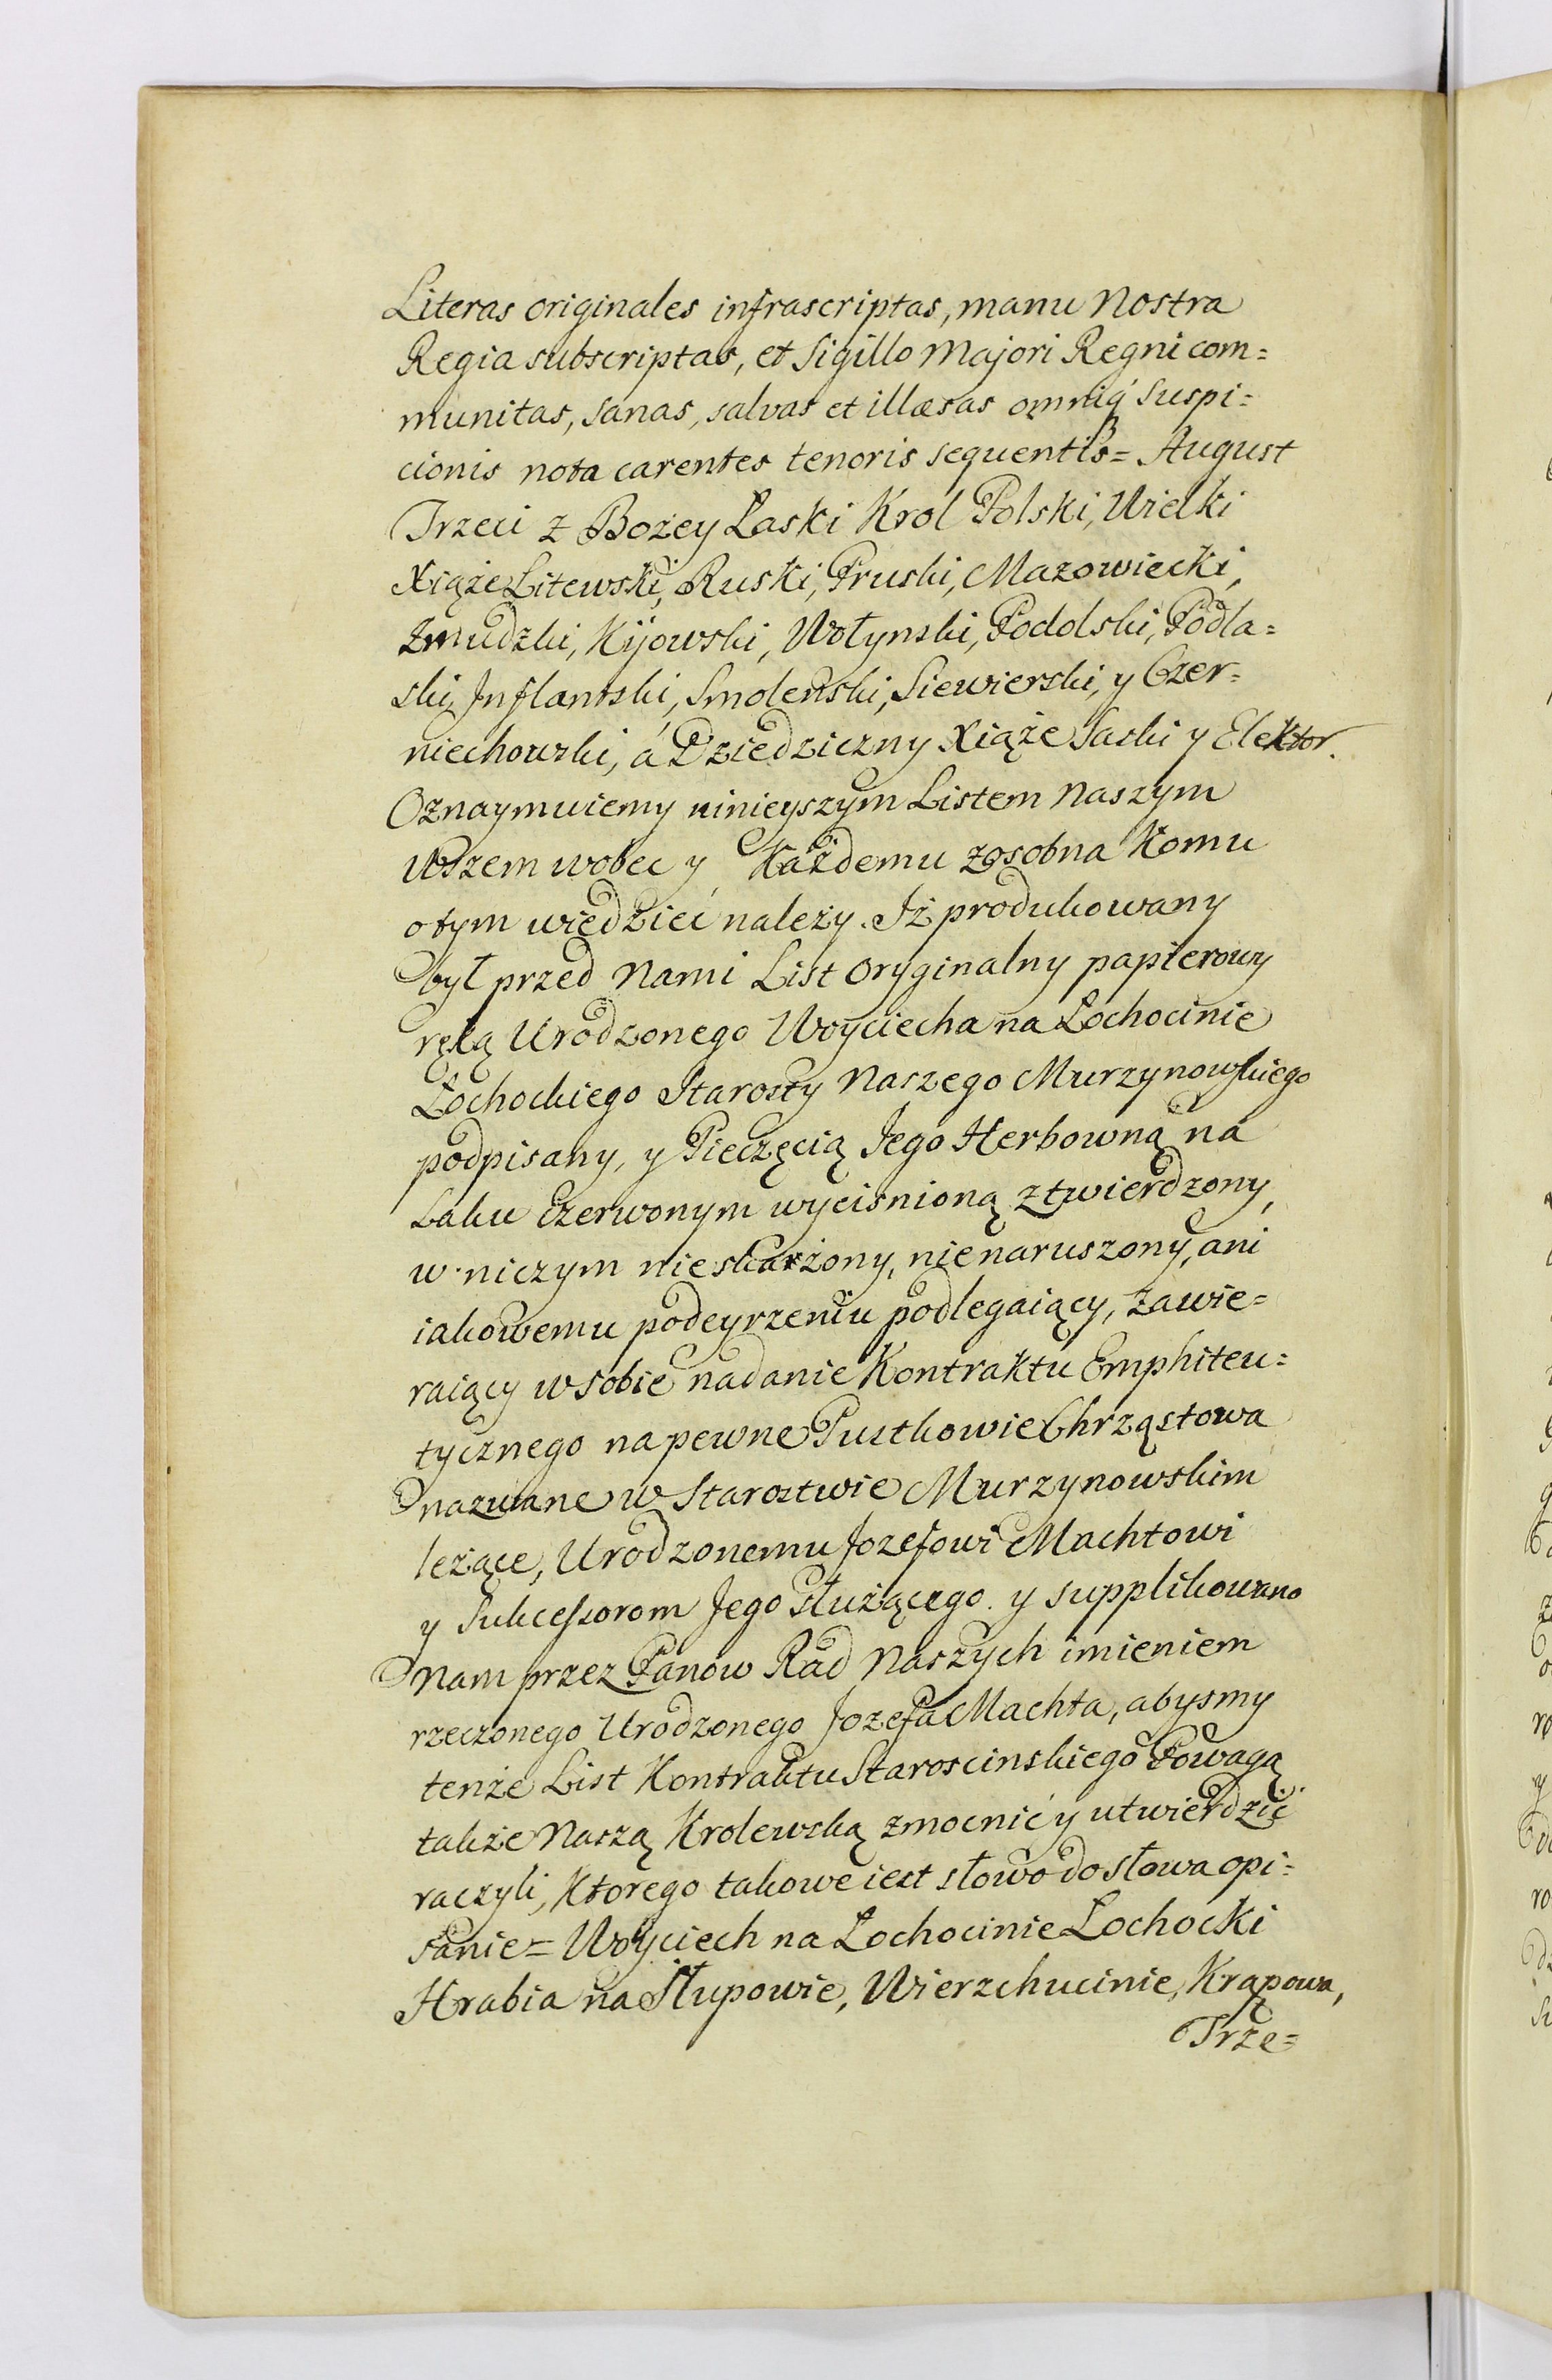 Literas originales infrascriptas, manu Nostra
Regia subscriptas, et Sigillo Majori Regni com=
munitas, sanas, salvas et illæsas omniq́ suspi=
cionis nota carentes tenoris sequentis = August
Trzeci z Bożey Łaski Krol Polski, Wielki
Xiąże Litewski, Ruski, Pruski, Mazowiecki,
Zmudzki, Kijowski, Wołynski, Podolski, Podla=
ski, Inflantski, Smolenski, Siewierski, y Czer=
niechowski, á Dziedziczny Xiąże Saski y Elektor.
Oznaymuiemy ninieyszym Listem Naszym
Wszem wobec y Każdemu zosobna Komu
o tym wiedzieć należy. Iż produkowany
był przed Nami List Oryginalny papierowy
ręką Urodzonego Woyciecha na Łochocinie
Łochockiego Starosty Naszego Murzynowskiego
podpisany, y Pieczęcią Jego Herbowną na
Laku Czerwonym wycisnioną ztwierdzony,
w niczym nieskarżony, nienaruszony, ani
iakowemu podeyrzeniu podlegaiący, zawie=
raiący w sobie nadanie Kontraktu Emphiteu=
tycznego na pewne Pustkowie Chrząstowa
nazwane w Starostwie Murzynowskim
leżące, Urodzonemu Jozefowi Machtowi
y Sukcessorom Jego służącego. y supplikowano
Nam przez Panow Rad Naszych imieniem
rzeczonego Urodzonego Jozefa Machta, abysmy
tenże List Kontraktu Staroscinskiego Powagą
także Naszą Krolewską zmocnić y utwierdzić
raczyli, Ktorego takowe iest słowo do słowa opi=
sanie = Woyciech na Łochocinie Łochocki
Hrabia na Słupowie, Wierzchucinie, Krąpowa,
Trze=